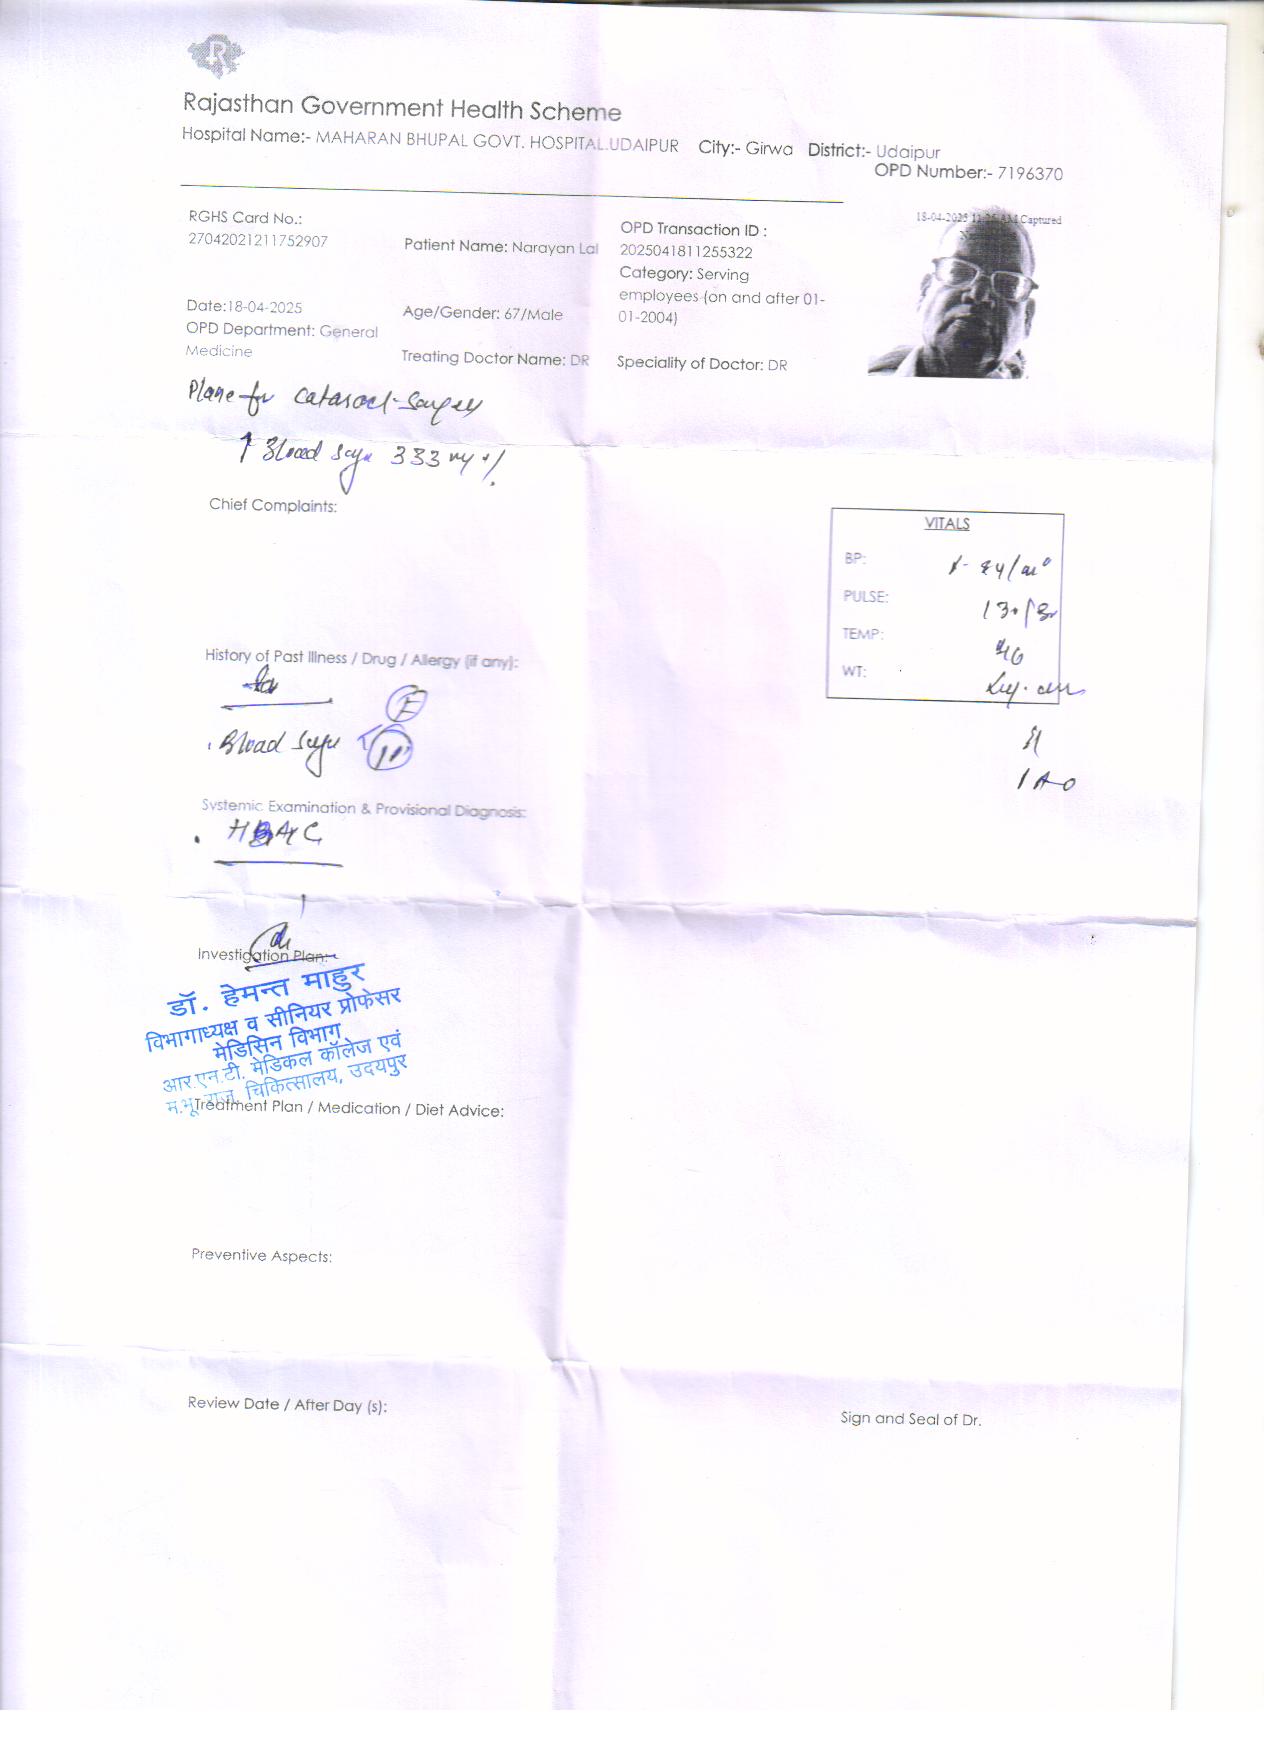 Rajasthan Government Health Scheme
Hospital Name:- MAHARAN BHUPAL GOVT. HOSPITAL.UDAIPUR City:- Girwa District:- Udaipur
OPD Number:- 7196370
RGHS Card No.:
27042021211752907
Patient Name: Narayan Lal
OPD Transaction ID :
2025041811255322
Category: Serving
employees (on and after 01-
01-2004)
18-04-2025 Captured
Date:18-04-2025
OPD Department: General
Medicine
Age/Gender: 67/Male
Treating Doctor Name: DR
Speciality of Doctor: DR
Plane for
↑ Blood 333
Chief Complaints:
VITALS
BP:
PULSE:
TEMP:
WT:
History of Past Illness / Drug / Allergy (if any):
Blood
Systemic Examination & Provisional Diagnosis:
Investigation Plan:
डॉ. हेमन्त माहुर
विभागाध्यक्ष व सीनियर प्रोफेसर
मेडिसिन विभाग
आर.एन.टी. मेडिकल कॉलेज एवं
म.भू. राज. चिकित्सालय, उदयपुर
Treatment Plan / Medication / Diet Advice:
Preventive Aspects:
Review Date / After Day (s):
Sign and Seal of Dr.